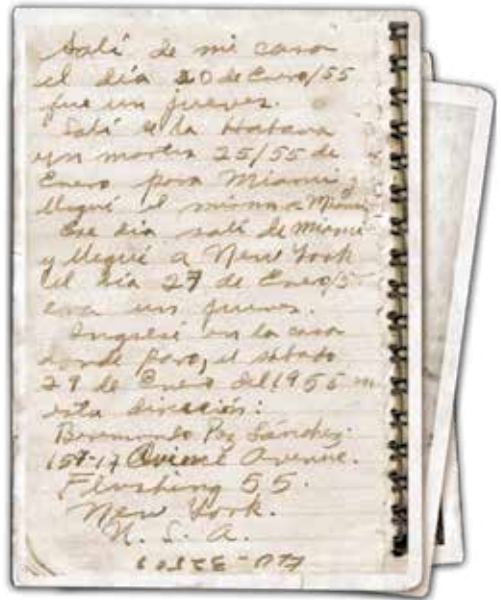 Salí de mi casa
el día 20 de Enero/55
fue un jueves.
Salí de la Habana
un martes 25/55 de
Enero para Miami y
llegué el mismo a Miami
Ese día salí de Miami
y llegué a New York
el día 27 de Enero/5
era un jueves.
Ingresé en la casa
donde paro, el sábado
29 de Enero del 1955 en
esta dirección:
Beremundo Paz Sánchez.
157-17 Avenue.
Flushing 55.
New York.
U. S. A.